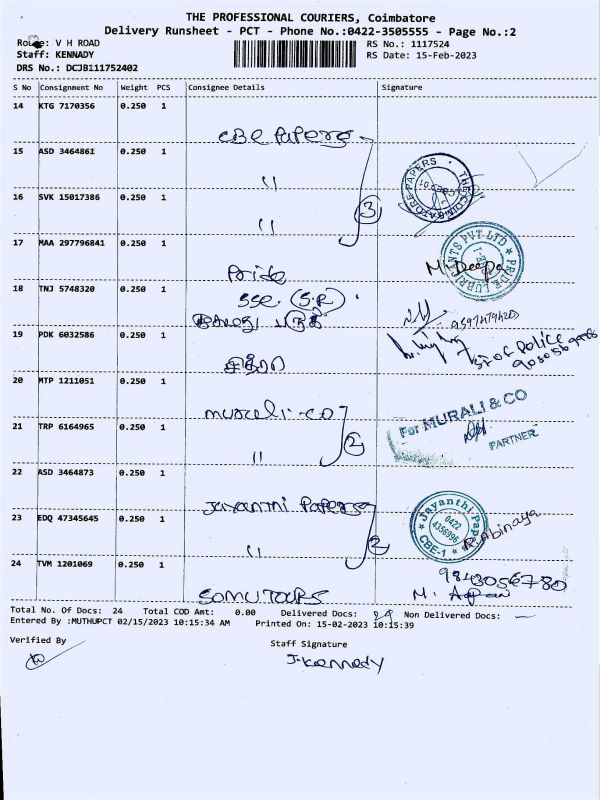 THE PROFESSIONAL COURIERS, Coimbatore
Delivery Runsheet - PCT - Phone No.:0422-3505555 - Page No.:2
Route: V H ROAD
RS No.: 1117524
Staff: KENNADY
RS Date: 15-Feb-2023
DRS No.: DCJB111752402
S No Consignment No Weight PCS Consignee Details Signature
14 KTG 7170356 0.250 1
CBE Papers
15 ASD 3464861 0.250 1
"
16 SVK 15017386 0.250 1
" 3
THE COIMBATORE PAPERS
17 MAA 297796841 0.250 1
Pride
M. Deepa
PRIDE LUBRICANTS PVT. LTD
18 TNJ 5748320 0.250 1
SSE. (S.R)
19 PDK 6032586 0.250 1
SI of Police
20 MTP 1211051 0.250 1
Murali - co
For MURALI & CO
21 TRP 6164965 0.250 1
" 2
PARTNER
22 ASD 3464873 0.250 1
Jayanthi Papers
23 EDQ 47345645 0.250 1
" 2
Jayanthi Pap
0422
4356996
CBE-1
R. Abinaya
24 TVM 1201069 0.250 1
SOMU TOURS
9843056780
M.
Total No. Of Docs: 24 Total COD Amt: 0.00 Delivered Docs: 24 Non Delivered Docs: —
Entered By :MUTHUPCT 02/15/2023 10:15:34 AM Printed On: 15-02-2023 10:15:39
Verified By
Staff Signature
J. Kennedy